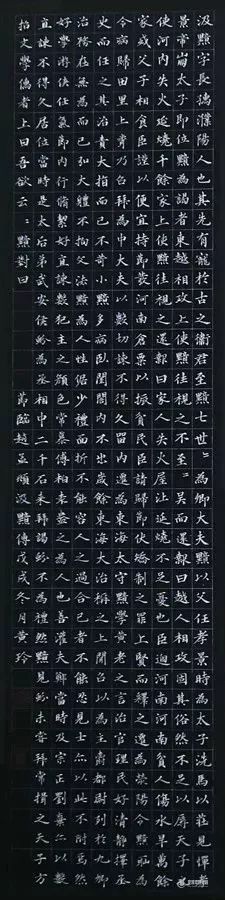 汲黯字長孺濮陽人也其先有寵於古之衛君至黯七世〻為卿大夫黯以父任孝景時為太子洗馬以莊見憚孝
景帝崩太子即位黯為謁者東越相攻上使黯往視之不至〻吳而還報曰越人相攻固其俗然不足以辱天子之
使河內失火延燒千餘家上使黯往視之還報曰家人失火屋比延燒不足憂也臣過河南〻貧人傷水旱萬餘
家或父子相食臣謹以便宜持節發河南倉粟以振貧民臣請歸節伏矯制之罪上賢而釋之遷為滎陽令黯恥為
令病歸田里上聞乃召拜為中大夫以數切諫不得久留內遷為東海太守黯學黃老之言治官理民好清靜擇丞
史而任之其治責大指而已不苛小黯多病臥閨閤內不出歲餘東海大治稱之上聞召以為主爵都尉列於九卿
治務在無為而已弘大體不拘文法黯為人性倨少禮面折不能容人之過合己者善待之不合己者不能忍見士亦以此不附焉然
好學游俠任氣節內行脩絜好直諫數犯主之顏色常慕傅柏袁盎之為人也善灌夫鄭當時及宗正劉棄亦以數
直諫不得久居位當時是太后弟武安侯蚡為丞相中二千石來拜謁蚡不為禮然黯見蚡未嘗拜常揖之天子方
招文學儒者上曰吾欲云〻黯對曰 節臨趙孟頫汲黯傳戊戌冬月黃玲